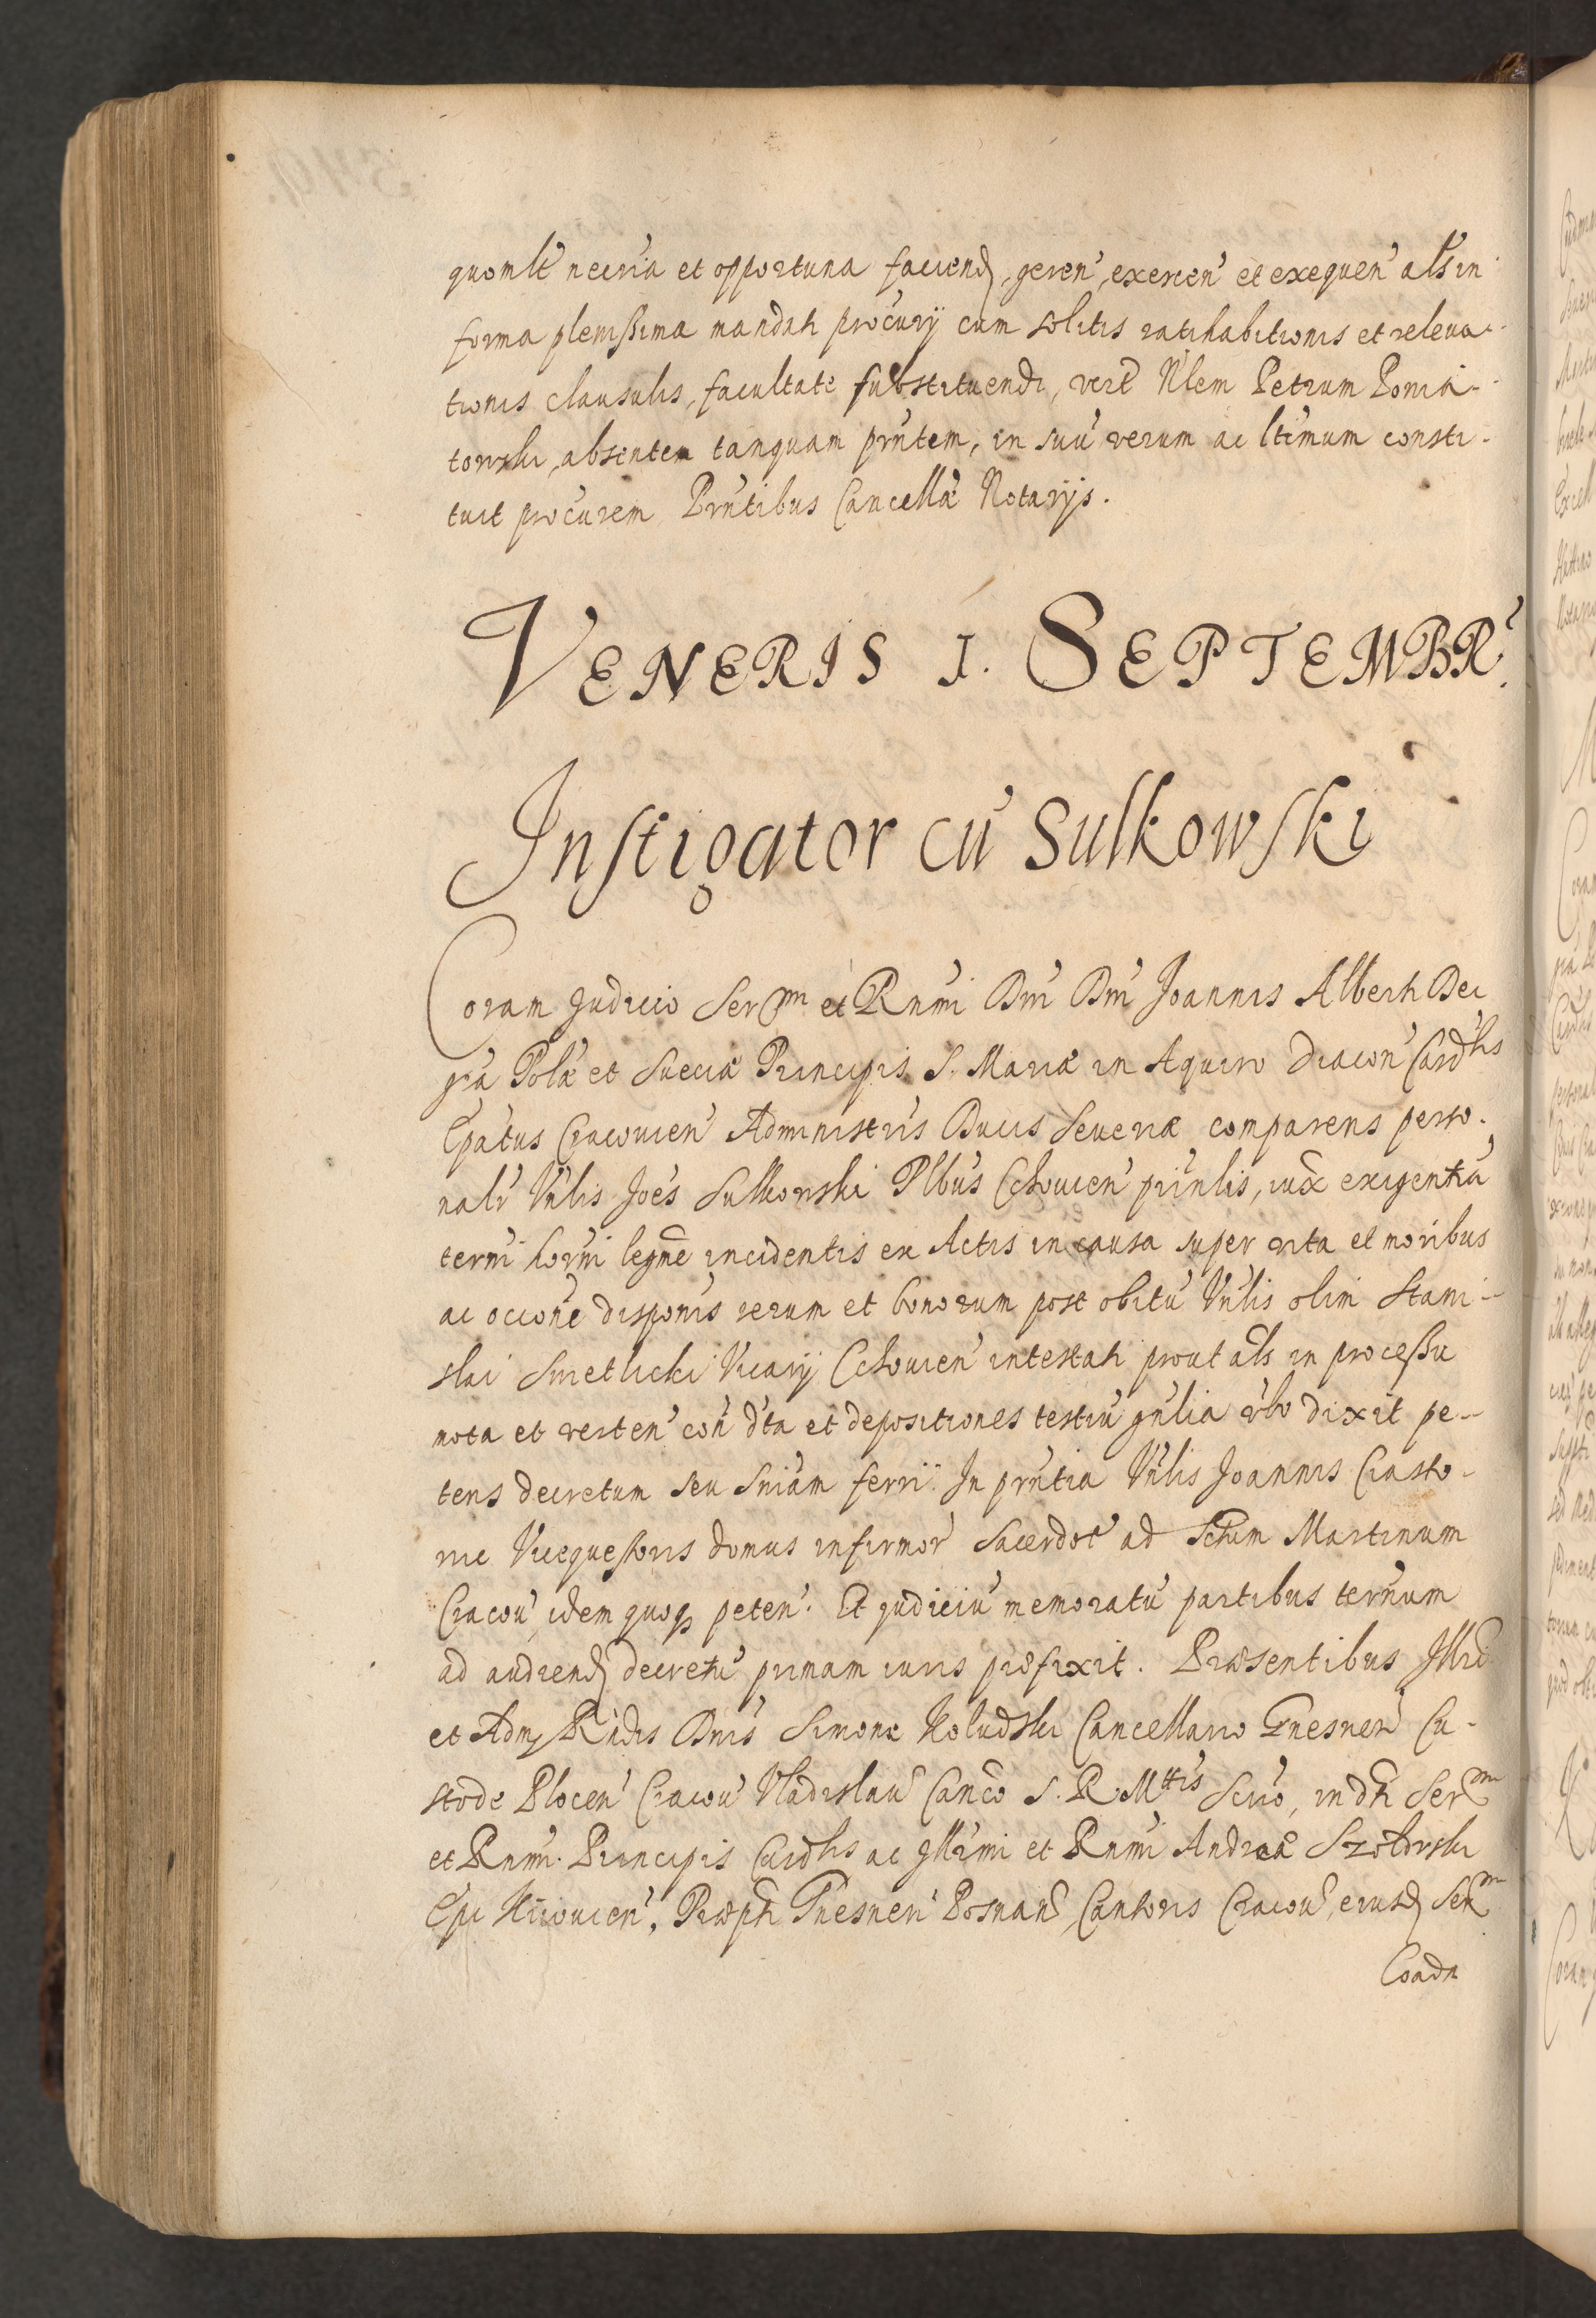 quomlt' necria et opportuna faciend, geren', exercen' et exequen' als in
forma plenissima mandati procurij cum solitis ratihabitionis et releva-
tionis clausulis, facultate substituendi, verd Nlem Petrum Ponia-
towski, absentem tanquam prntem, in suu' verum ac ltimum consti-
tuit procurem Prntibus Cancellae Notarijs.
VENERIS 1. SEPTEMBR'
Instigator cu' Sulkowski
Coram Judicio Sermi et Rnmi Dni Dni Joannis Alberti Dei
gra Polae et Sueciae Principis S. Mariae in Aquiro Diacon' Cardlis
Epatus Cracovien' Administris Ducis Severiae comparens perso-
nalr Vnlis Joes Sulkowski Plbus Cchovien' prinlis, iux exigentia'
termi horni legme incidentis ex Actis in causa super vita et moribus
ac occone disponis rerum et bonorum post obitu' Vnlis olim Stani-
slai Smetlicki Vicarij Cchovien' intestati prout als in processu
nota et verten' con' dta et depositiones testiu' gnlia vbo dixit pe-
tens decretum seu Sniam ferri. In prntia Vnlis Joannis Crasto-
nic Vicequestoris domus infirmor' Sacerdot' ad Sctum Martinum
Cracov' idem quoq peten'. Et Judiciu' memoratu' partibus ternum
ad audiend decretu' primam iuris praefixit. Praesentibus Illri
et Adm Rndis Dnis Simone Koludzki Cancellario Gnesnen' Cu-
stode Plocen' Cracov' Vladislav' Canco S. R. Mttis Scrio, indti Sermi
et Rnmi Principis Cardlis ac Illrmi et Rnmi Andreae Szoldrski
Epi Kiiovien', Praepti Gnesnen' Posnan', Cantoris Cracov', eiusd Serm
Coadn